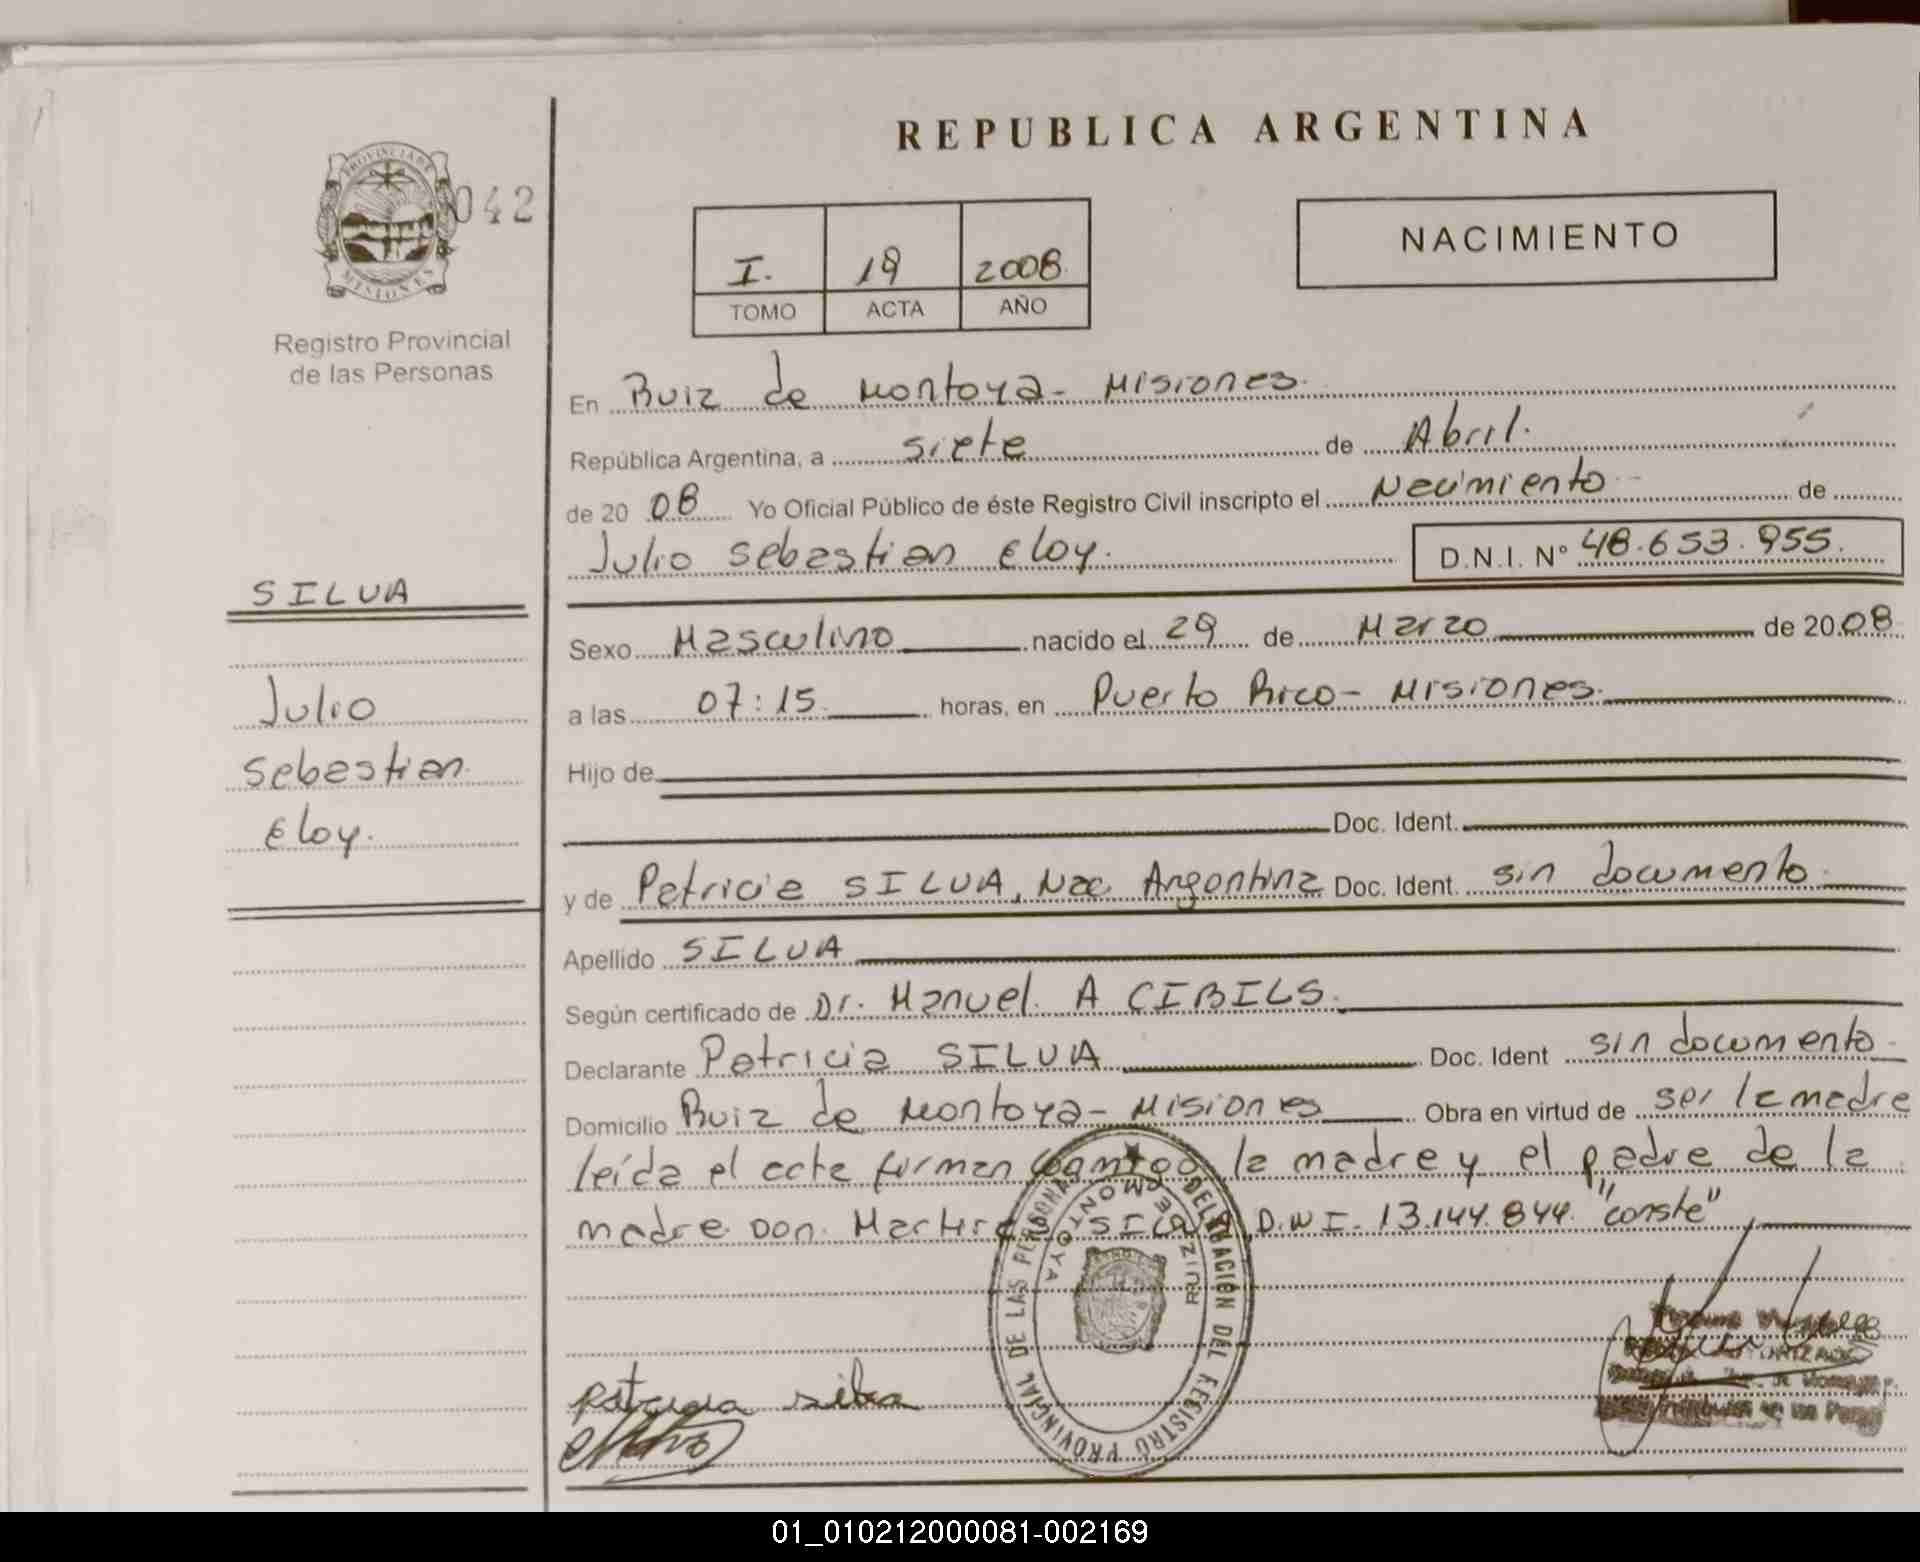 REPUBLICA ARGENTINA
PROVINCIA DE
MISIONES
042
Registro Provincial
de las Personas
I. 19 2008.
TOMO ACTA AÑO
NACIMIENTO
SILVA
Julio
Sebastian
Eloy.
En Ruiz de Montoya - Misiones.
República Argentina, a siete de Abril.
de 20 08 Yo Oficial Público de éste Registro Civil inscripto el Nacimiento de
Julio Sebastian Eloy. D.N.I. N° 48.653.955.
Sexo Masculino nacido el 29 de Marzo de 20 08
a las 07:15 horas, en Puerto Rico - Misiones.
Hijo de
Doc. Ident.
y de Patricia SILVA, Nac. Argentina Doc. Ident. sin documento
Apellido SILVA
Según certificado de Dr. Manuel. A CIBILS.
Declarante Patricia SILVA Doc. Ident sin documento
Domicilio Ruiz de Montoya - Misiones Obra en virtud de ser la madre
leída el acta firman conmigo la madre y el padre de la
madre Don. SILVA, D.N.I. 13.144.844. "conste"
DELEGACIÓN DEL REGISTRO PROVINCIAL DE LAS PERSONAS
RUIZ DE MONTOYA
patricia silva
01_010212000081-002169